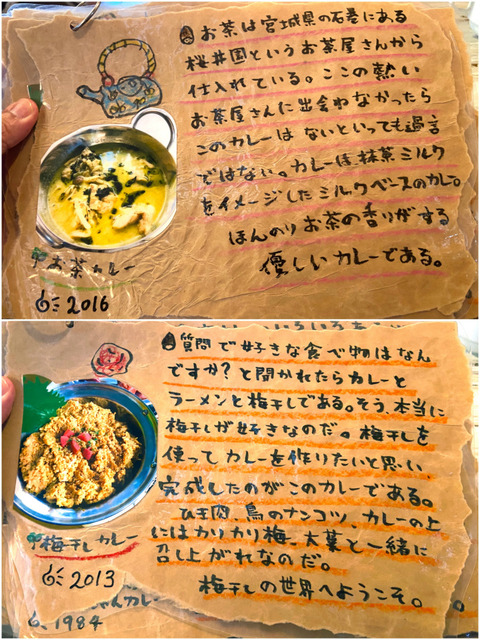 お茶は宮城県の石巻にある
桜井園というお茶屋さんから
仕入れている。ここの熱い
お茶屋さんに出会わなかったら
このカレーはないといっても過言
ではない。カレーは抹茶ミルク
をイメージしたミルクベースのカレー。
ほんのりお茶の香りがする
優しいカレーである。
お茶カレー
2016
質問で好きな食べ物はなん
ですか?と聞かれたらカレーと
ラーメンと梅干しである。そう、本当に
梅干しが好きなのだ。梅干しを
使ってカレーを作りたいと思い、
完成したのがこのカレーである。
ひき肉、鳥のナンコツ、カレーの上
にはカリカリ梅、大葉と一緒に
召し上がれなのだ。
梅干しの世界へようこそ。
梅干しカレー
2013
ちゃんカレー
1984